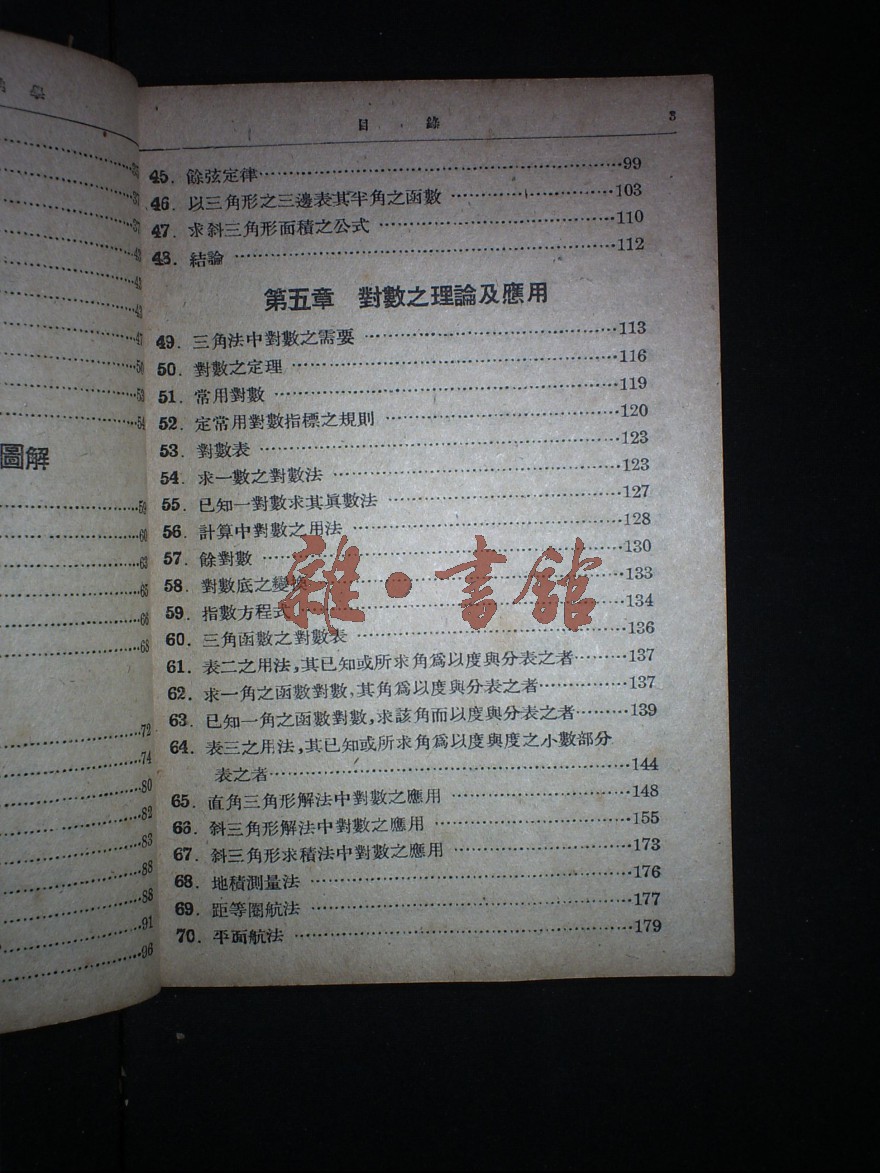 學
35
37
37
43
42
43
47
50
53
54
圖解
59
60
63
65
66
68
72
74
80
82
83
88
88
91
96
目 錄 3
45. 餘弦定律……99
46. 以三角形之三邊表其半角之函數……103
47. 求斜三角形面積之公式……110
48. 結論……112
第五章 對數之理論及應用
49. 三角法中對數之需要……113
50. 對數之定理……116
51. 常用對數……119
52. 定常用對數指標之規則……120
53. 對數表……123
54. 求一數之對數法……123
55. 已知一對數求其眞數法……127
56. 計算中對數之用法……128
57. 餘對數……130
58. 對數底之變換……133
59. 指數方程式……134
60. 三角函數之對數表……136
61. 表二之用法,其已知或所求角爲以度與分表之者……137
62. 求一角之函數對數,其角爲以度與分表之者……137
63. 已知一角之函數對數,求該角而以度與分表之者……139
64. 表三之用法,其已知或所求角爲以度與度之小數部分
表之者……144
65. 直角三角形解法中對數之應用……148
66. 斜三角形解法中對數之應用……155
67. 斜三角形求積法中對數之應用……173
68. 地積測量法……176
69. 距等圈航法……177
70. 平面航法……179
雜·書館